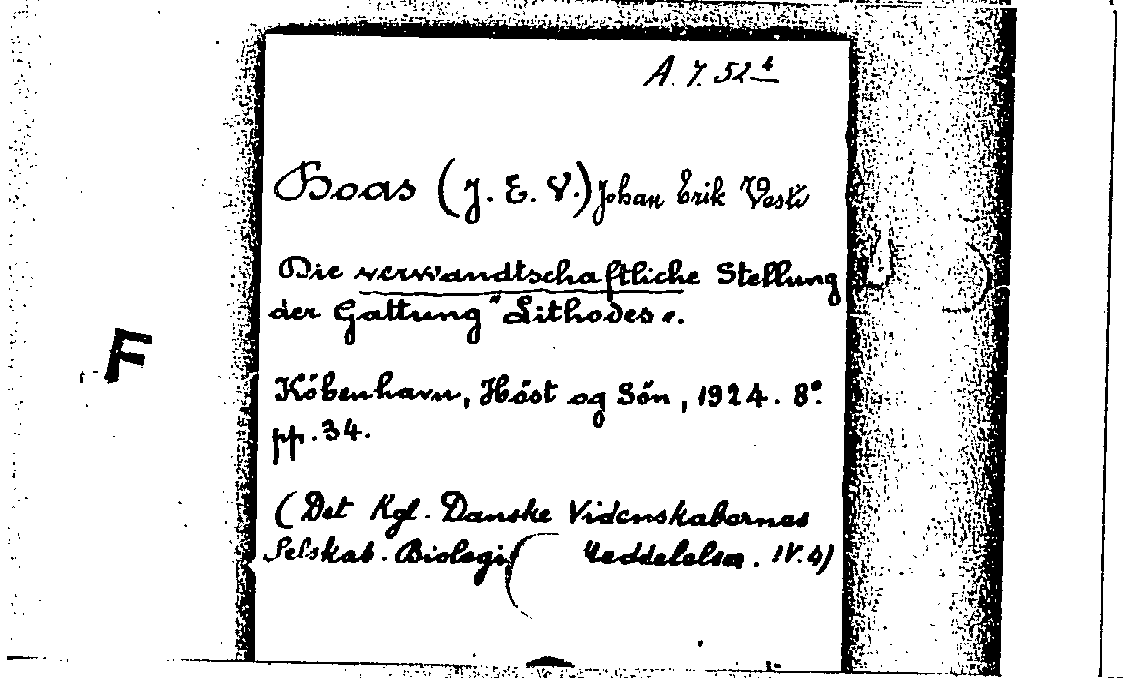 A. 7. 52⁴
Boas (J. E. V.) Johan Erik Vesti
Die verwandtschaftliche Stellung
der Gattung "Lithodes".
København, Höst og Sön, 1924. 8°.
pp. 34.
F
(Det Kgl. Danske Videnskabernes
Selskab. Biologi( Meddelelser. IV. 4)